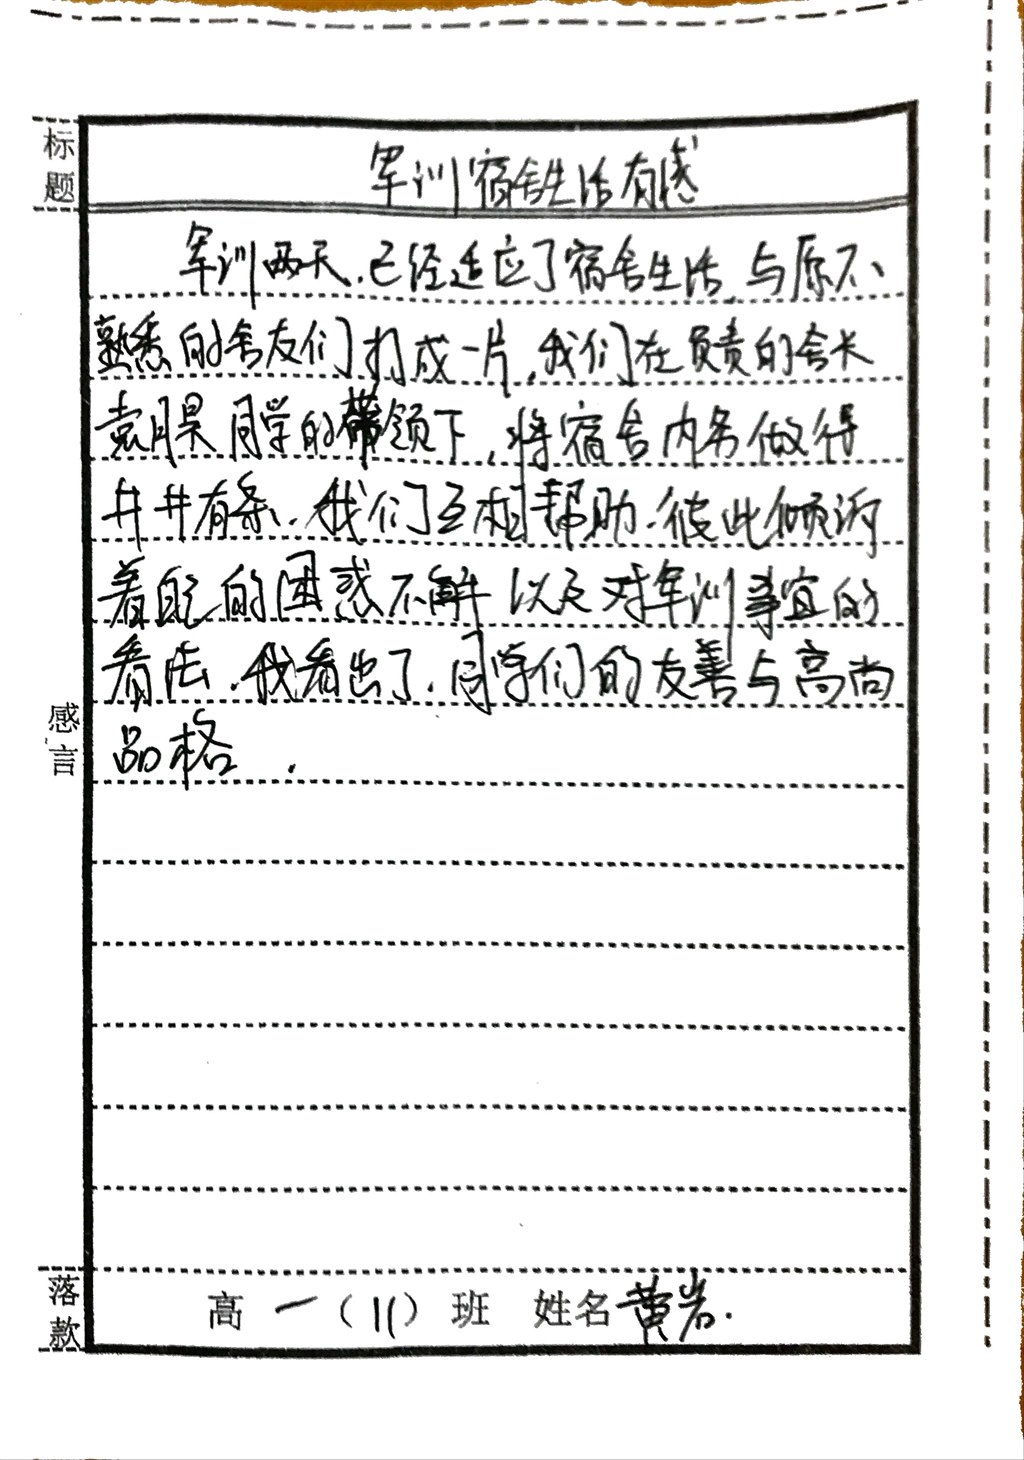 标题
军训宿舍生活有感
军训两天，已经适应了宿舍生活，与原不
熟悉的舍友们打成一片，我们在负责的舍长
袁月昊同学的带领下，将宿舍内务做得
井井有条，我们互相帮助，彼此倾诉
着自己的困惑不解以及对军训事宜的
看法，我看出了，同学们的友善与高尚
品格．
感言
落款
高一（11）班 姓名黄岩．